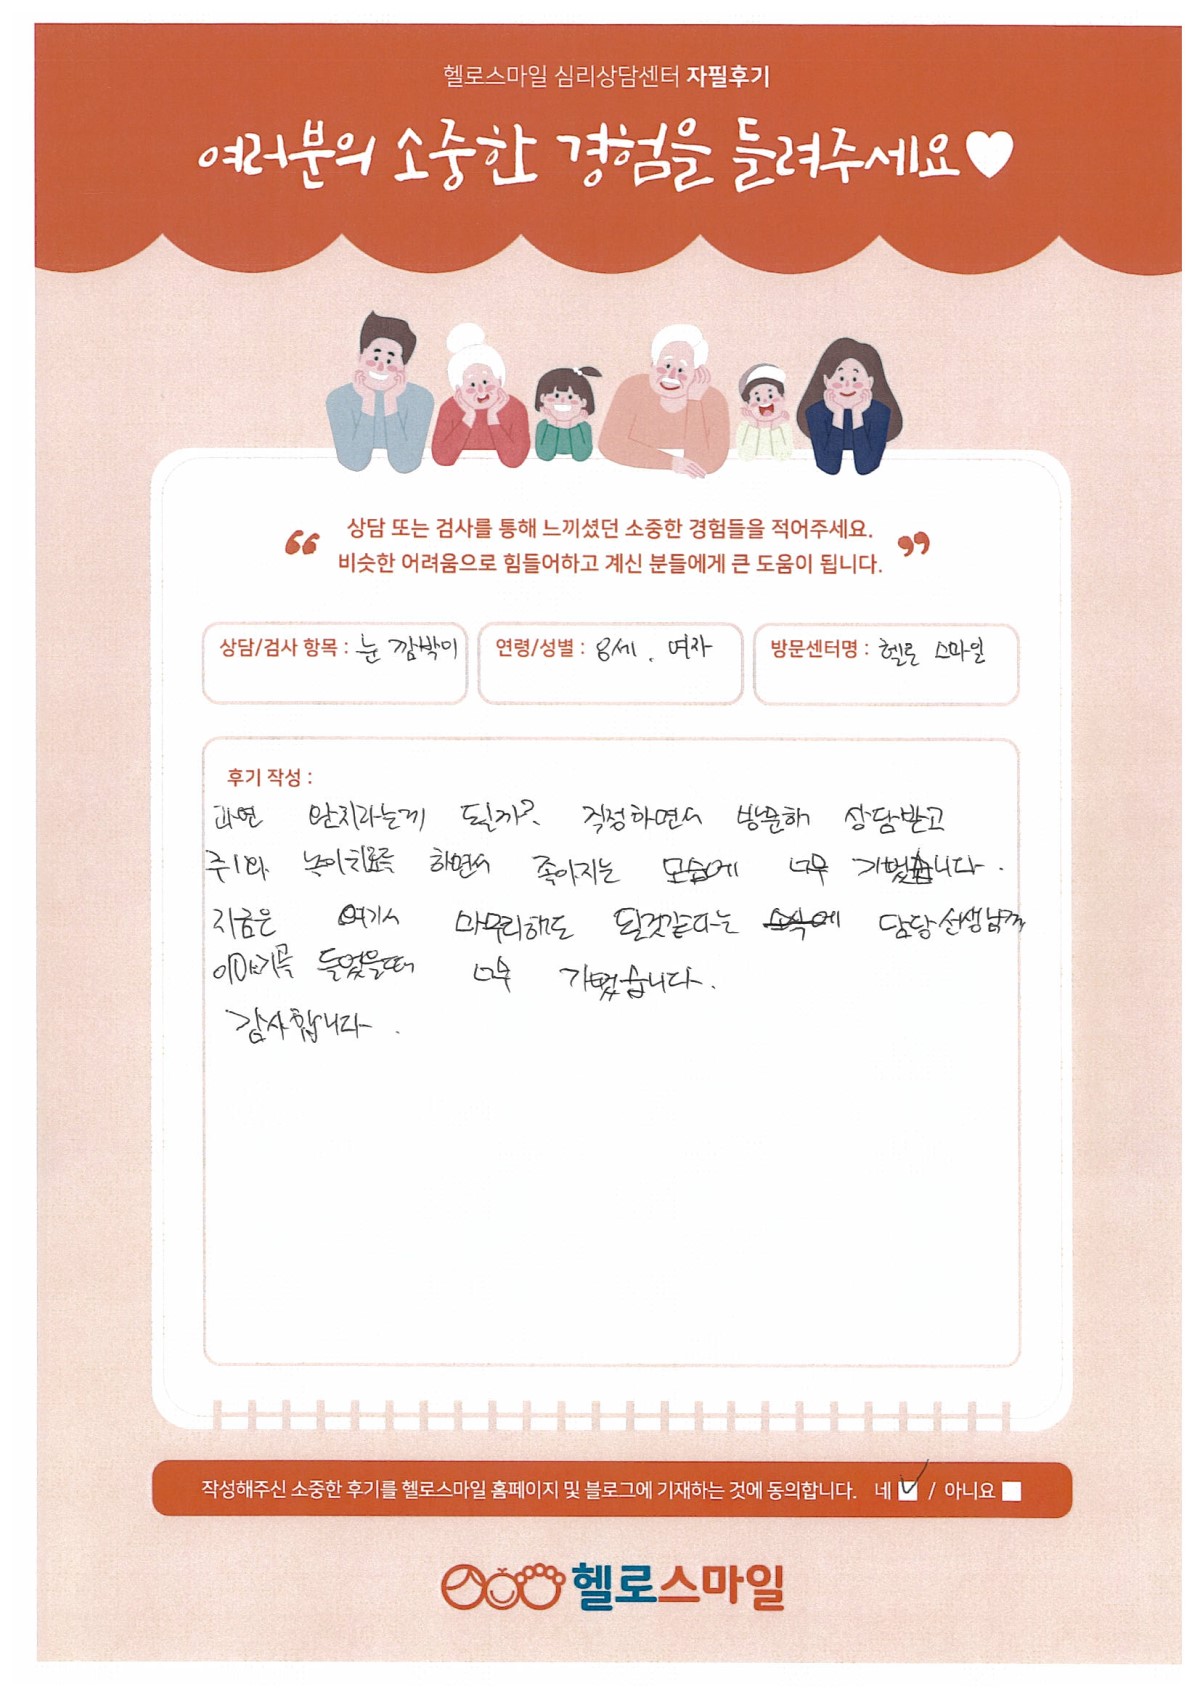 헬로스마일 심리상담센터 자필후기
여러분의 소중한 경험을 들려주세요♥
“ 상담 또는 검사를 통해 느끼셨던 소중한 경험들을 적어주세요.
비슷한 어려움으로 힘들어하고 계신 분들에게 큰 도움이 됩니다. ”
상담/검사 항목 : 눈 깜박이
연령/성별 : 8세. 여자
방문센터명 : 헬로 스마일
후기 작성 :
과연 완치라는게 될까? 걱정하면서 방문해 상담받고
주1회 놀이치료를 하면서 좋아지는 모습에 너무 기뻤습니다.
지금은 여기서 마무리해도 될것같다는 소식에 담당선생님께
이야기를 들었을때 너무 기뻤습니다.
감사합니다.
작성해주신 소중한 후기를 헬로스마일 홈페이지 및 블로그에 기재하는 것에 동의합니다. 네 / 아니요
헬로스마일